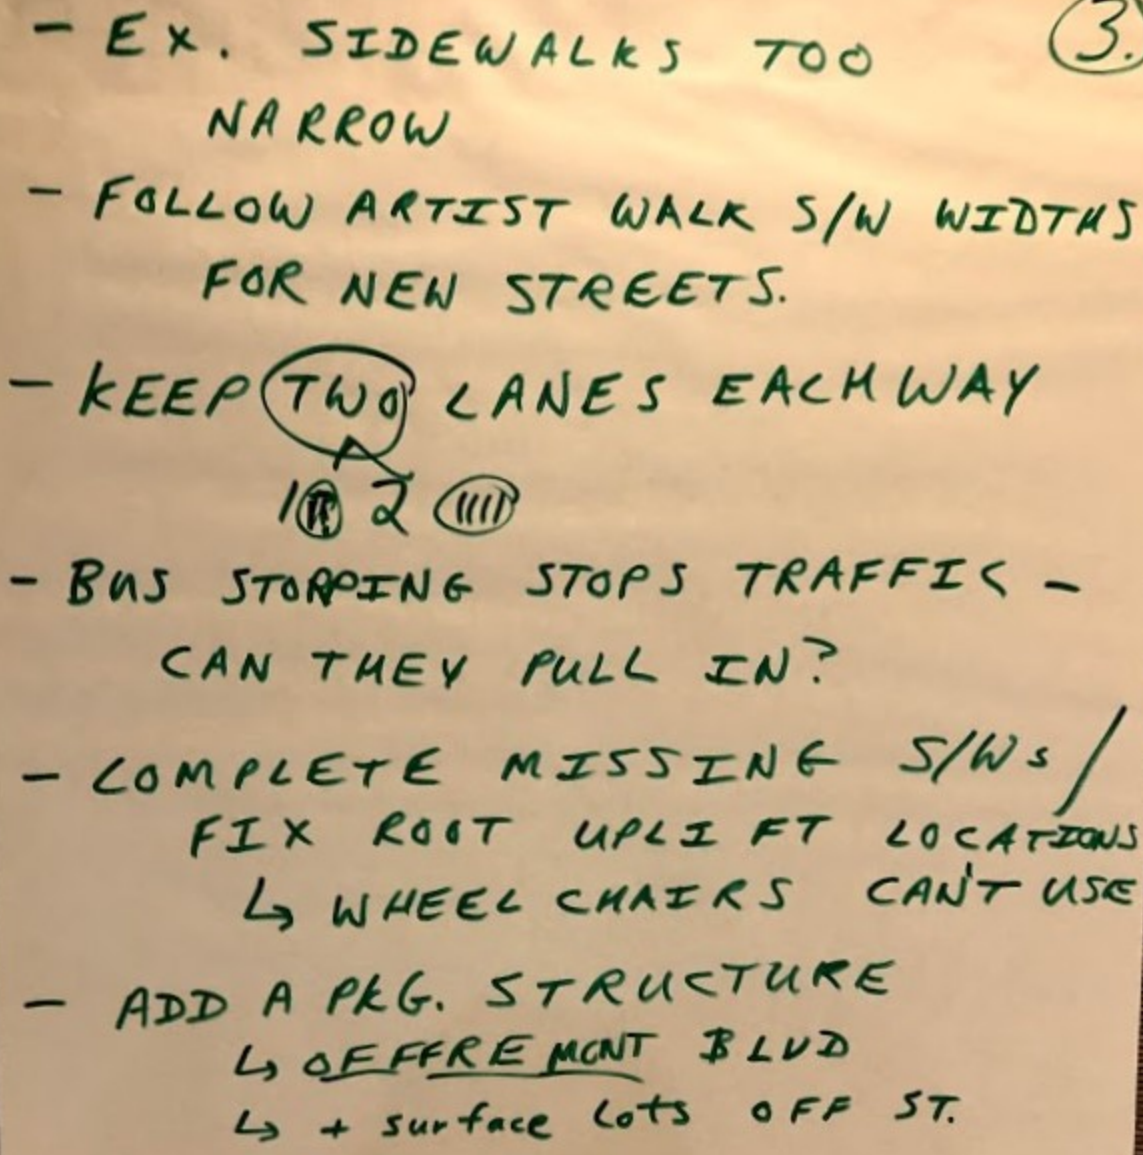 - EX. SIDEWALKS TOO
3.
NARROW
- FOLLOW ARTIST WALK S/W WIDTHS
FOR NEW STREETS.
- KEEP TWO LANES EACH WAY
1 2
- BUS STOPPING STOPS TRAFFIC -
CAN THEY PULL IN?
- COMPLETE MISSING S/Ws /
FIX ROOT UPLIFT LOCATIONS
↳ WHEEL CHAIRS CAN'T USE
- ADD A PKG. STRUCTURE
↳ OFF FREMONT BLVD
↳ + surface Lots OFF ST.